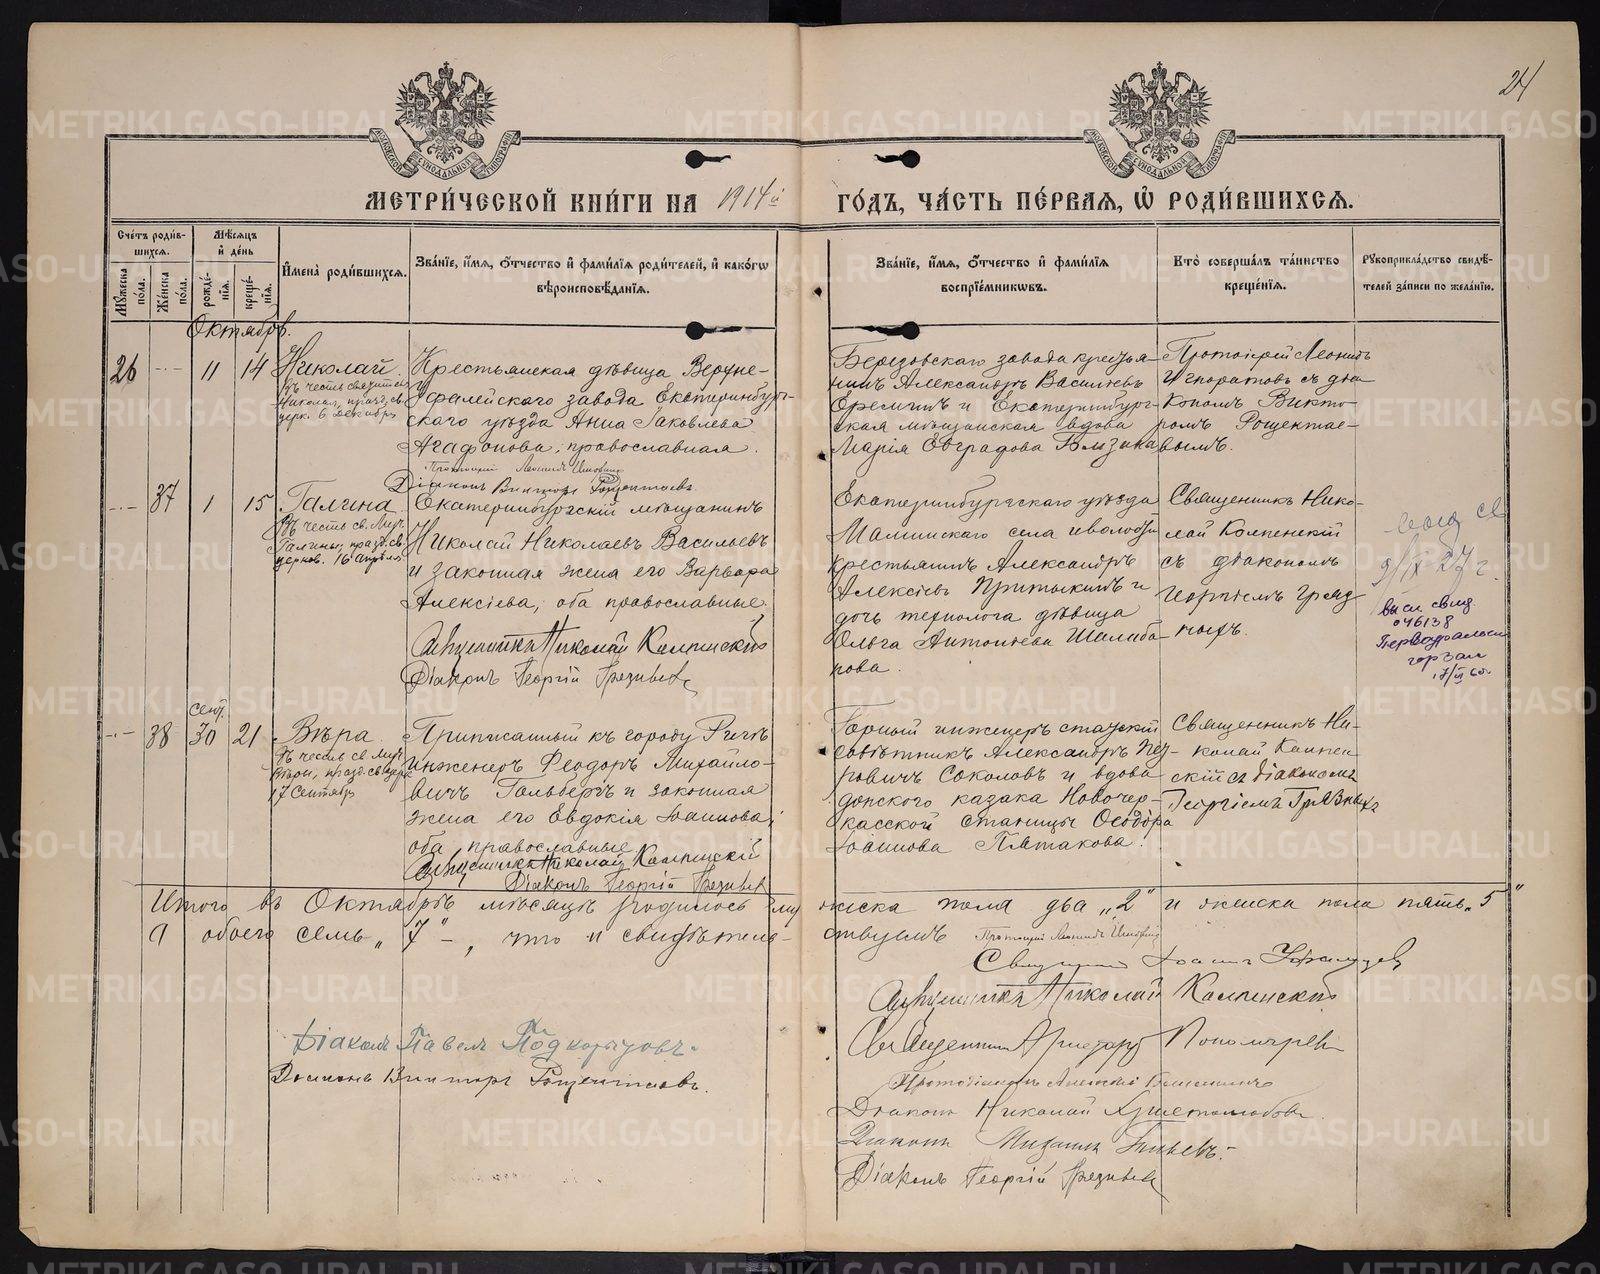 24
МЕТРИ́ЧЕСКОЙ КНИ́ГИ НА 1914й ГО́ДЪ, ЧА́СТЬ ПЕ́РВАЯ, Ѡ РОДИ́ВШИХСЯ.
Сче́тъ роди́вшихся.
Му́жеска по́ла.
Же́нска по́ла.
Мѣ́сяцъ и де́нь
рожде́нія.
креще́нія.
Имена̀ роди́вшихся.
Зва́ніе, и́мя, о́тчество и фами́лія роди́телей, и како́гѡ вѣроисповѣ́данія.
Зва́ніе, и́мя, о́тчество и фами́лія воспріе́мникѡвъ.
Кто̀ соверша́лъ та́инство креще́нія.
Рукоприкла́дство свидѣ́телей за́писи по жела́нію.
Октябрь.
26
11 14
Николай.
Въ честь святит.
Николая, празд. св.
церк. 6 декабря
Крестьянская дѣвица Верхне-
Уфалейскаго завода Екатеринбург-
скаго уѣзда Анна Іаковлева
Агафонова, православная.
Протоіерей Леонидъ Игноратовъ
Діаконъ Викторъ Рощектаевъ
Березовскаго завода крестья-
нинъ Александръ Васильевъ
Ереминъ и Екатеринбург-
ская мѣщанская вдова
Марія Евградова
Протоіерей Леонидъ
Игноратовъ съ діа-
кономъ Викто-
ромъ Рощектае-
вымъ.
37
1 15
Галина
Въ честь св. Муч.
Галины, празд. св.
церков. 16 апрѣля
Екатеринбургскій мѣщанинъ
Николай Николаевъ Васильевъ
и законная жена его Варвара
Алексіева, оба православные.
Священникъ Николай
Діаконъ Георгій
Екатеринбургскаго уѣзда
села
крестьянинъ Александръ
Алексіевъ и
дочь дѣвица
Ольга Антоніева Шалаба-
нова.
Священникъ Нико-
лай
съ діакономъ
Георгіемъ Гряз-
ныхъ.
9/IX-27 г.
выд. свид.
046138
Первоуральск
горЗАГС
38
сент.
30 21
Вѣра.
Въ честь св. муч.
Вѣры, празд. св. церк.
17 сентябр
Приписанный къ городу Ригѣ
инженеръ Феодоръ Михайло-
вичъ Гольбергъ и законная
жена его Евдокія Іоаннова;
оба православные.
Священникъ Николай
Діаконъ Георгій
Горный инженеръ статскій
совѣтникъ Александръ Пет-
ровичъ Соколовъ и вдова
донского казака Новочер-
касской станицы Ѳеодора
Іоаннова Пятакова.
Священникъ Ни-
колай
съ діакономъ
Георгіемъ Грязныхъ
Итого въ Октябрѣ мѣсяцѣ родилось му жеска пола два „2" и женска пола пять „5"
а обоего семь „7" -, что и свидѣтель- ствуемъ
Протоіерей Леонидъ
Священникъ Іоаннъ
Священникъ Николай
Священникъ Пономаревъ
Протодіаконъ Алексій
Діаконъ Николай
Діаконъ Михаилъ
Діаконъ Георгій
Діаконъ Павелъ Подкорытовъ.
Діаконъ Викторъ Рощектаевъ.
METRIKI.GASO-URAL.RU